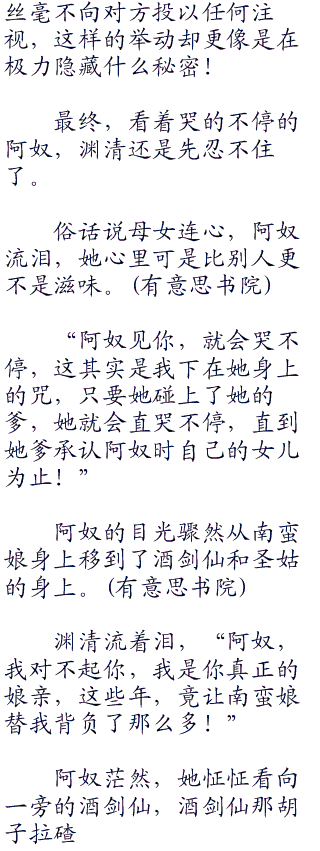 丝毫不向对方投以任何注
视，这样的举动却更像是在
极力隐藏什么秘密！
最终，看着哭的不停的
阿奴，渊清还是先忍不住
了。
俗话说母女连心，阿奴
流泪，她心里可是比别人更
不是滋味。(有意思书院)
“阿奴见你，就会哭不
停，这其实是我下在她身上
的咒，只要她碰上了她的
爹，她就会直哭不停，直到
她爹承认阿奴时自己的女儿
为止！”
阿奴的目光骤然从南蛮
娘身上移到了酒剑仙和圣姑
的身上。(有意思书院)
渊清流着泪，“阿奴，
我对不起你，我是你真正的
娘亲，这些年，竟让南蛮娘
替我背负了那么多！”
阿奴茫然，她怔怔看向
一旁的酒剑仙，酒剑仙那胡
子拉碴